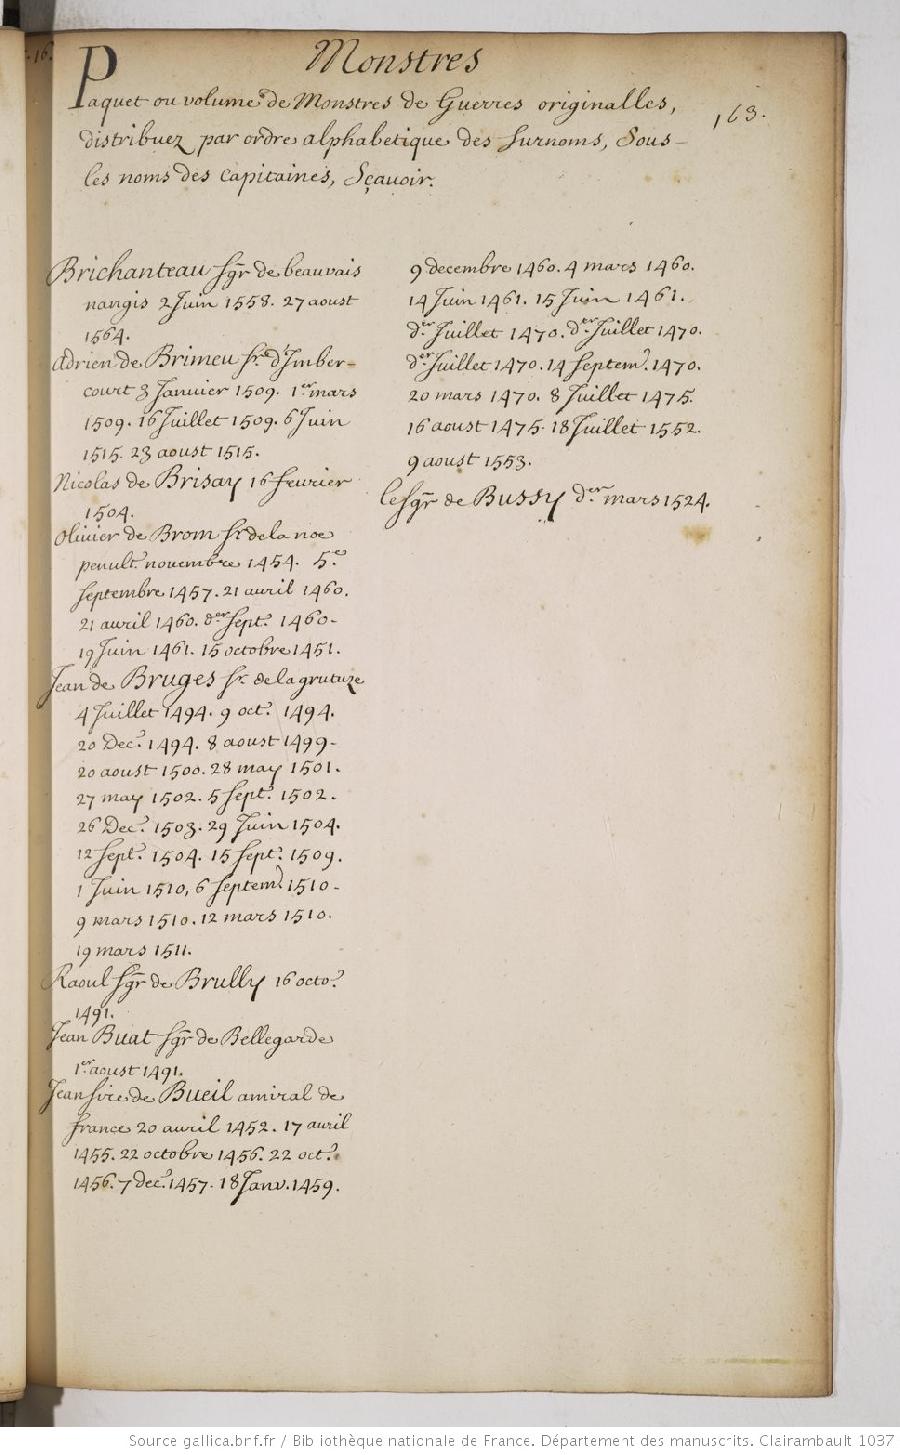 Monstres
163.
Paquet ou volume de Monstres de Guerres originalles,
distribuez par ordre alphabetique des surnoms, Sous-
les noms des capitaines, Sçavoir.
Brichanteau sgr. de beauvais
nangis 2 Juin 1558. 27 aoust
1564.
Adrien de Brimeu sr. d'Imber-
court 3 Janvier 1509. 1er. mars
1509. 16 Juillet 1509. 6 Juin
1515. 23 aoust 1515.
Nicolas de Brisay 16 fevrier
1504.
Olivier de Brom sr. de la noe
penult. novembre 1454. 5e.
septembre 1457. 21 avril 1460.
21 avril 1460. der. sept. 1460.
19 Juin 1461. 15 octobre 1451.
Jean de Bruges sr. de la grutuze
4 Juillet 1494. 9 oct. 1494.
20 Dec. 1494. 8 aoust 1499.
20 aoust 1500. 28 may 1501.
27 may 1502. 5 sept. 1502.
26 Dec. 1503. 29 Juin 1504.
12 sept. 1504. 15 sept. 1509.
1 Juin 1510, 6 septem. 1510.
9 mars 1510. 12 mars 1510.
19 mars 1511.
Raoul sgr. de Brully 16 octo.
1491.
Jean Buat sgr. de Bellegarde
1er. aoust 1491.
Jean sire de Bueil amiral de
france 20 avril 1452. 17 avril
1455. 22 octobre 1456. 22 oct.
1456. 7 dec. 1457. 18 Janv. 1459.
9 decembre 1460. 4 mars 1460.
14 Juin 1461. 15 Juin 1461.
der. Juillet 1470. der. Juillet 1470.
der. Juillet 1470. 14 septem. 1470.
20 mars 1470. 8 Juillet 1475.
16 aoust 1475. 18 Juillet 1552.
9 aoust 1553.
le sgr. de Bussy der. mars 1524.
Source gallica.bnf.fr / Bibliothèque nationale de France. Département des manuscrits. Clairambault 1037